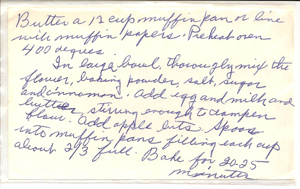 Butter a 12 cup muffin pan or line
with muffin papers. Preheat oven
400 degrees.
In large bowl, thoroughly mix the
flour, baking powder, salt, sugar
and cinnamon. Add egg and milk and
butter stirring enough to dampen
flour. Add apple bits. Spoon
into muffin pans filling each cup
about 2/3 full. Bake for 20-25
minutes